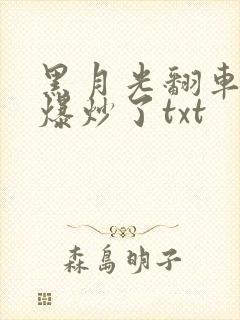 黑月光翻车
爆炒了txt
森島明子